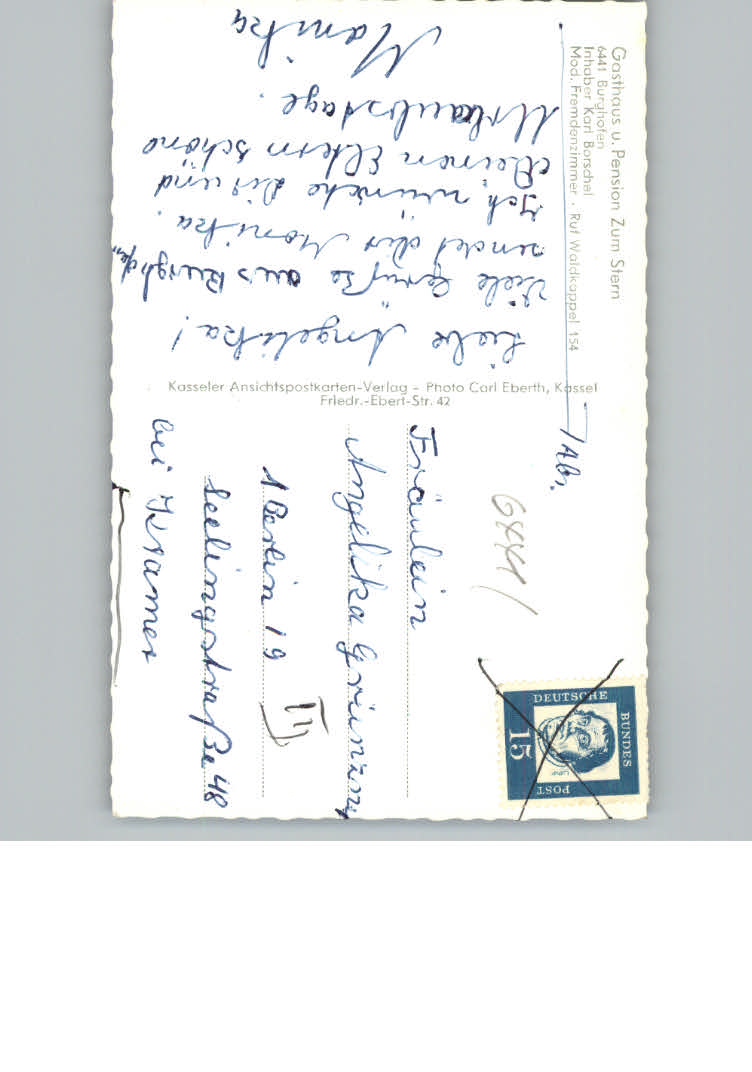 Gasthaus u. Pension Zum Stern
6441 Burghofen
Inhaber Karl Borschel
Mod. Fremdenzimmer · Ruf Waldkappel 154
Liebe Angelika!
Viele Grüße aus Burghofen
sendet dir Monika.
Ich wünsche Dir und
Deinen Eltern schöne
Urlaubstage.
Monika
Kasseler Ansichtspostkarten-Verlag – Photo Carl Eberth, Kassel
Friedr.-Ebert-Str. 42
/Abs.
6441
DEUTSCHE
BUNDES
POST
15
Fräulein
Angelika
1 Berlin 19
Seelingstraße 48
bei Kramer
III